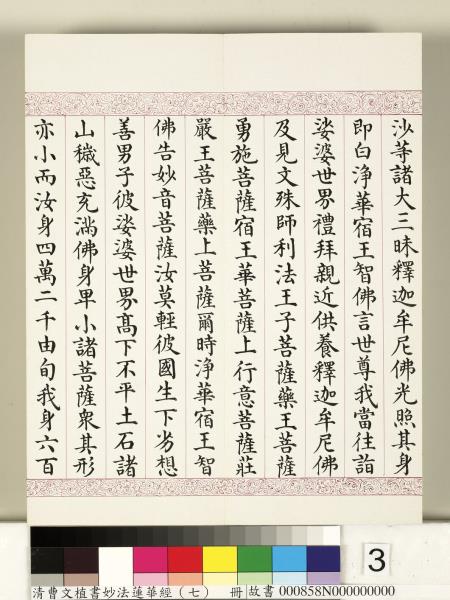 沙等諸大三昧釋迦牟尼佛光照其身
即白淨華宿王智佛言世尊我當往詣
娑婆世界禮拜親近供養釋迦牟尼佛
及見文殊師利法王子菩薩藥王菩薩
勇施菩薩宿王華菩薩上行意菩薩莊
嚴王菩薩藥上菩薩爾時淨華宿王智
佛告妙音菩薩汝莫輕彼國生下劣想
善男子彼娑婆世界高下不平土石諸
山穢惡充滿佛身卑小諸菩薩衆其形
亦小而汝身四萬二千由旬我身六百
3
清曹文植書妙法蓮華經（七） 冊 故書 000858N000000000